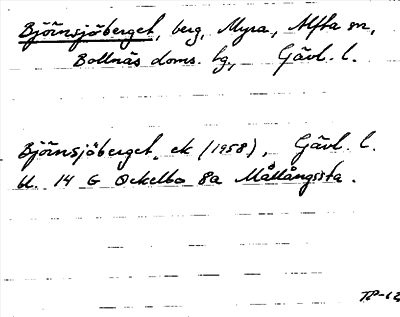 Björnsjöberget, berg, Myra, Alfta sn,
Bollnäs doms. lg, Gävl. l.
Björnsjöberget, ek (1958), Gävl. l.
bl. 14 G Ockelbo 8a Mållångssta.